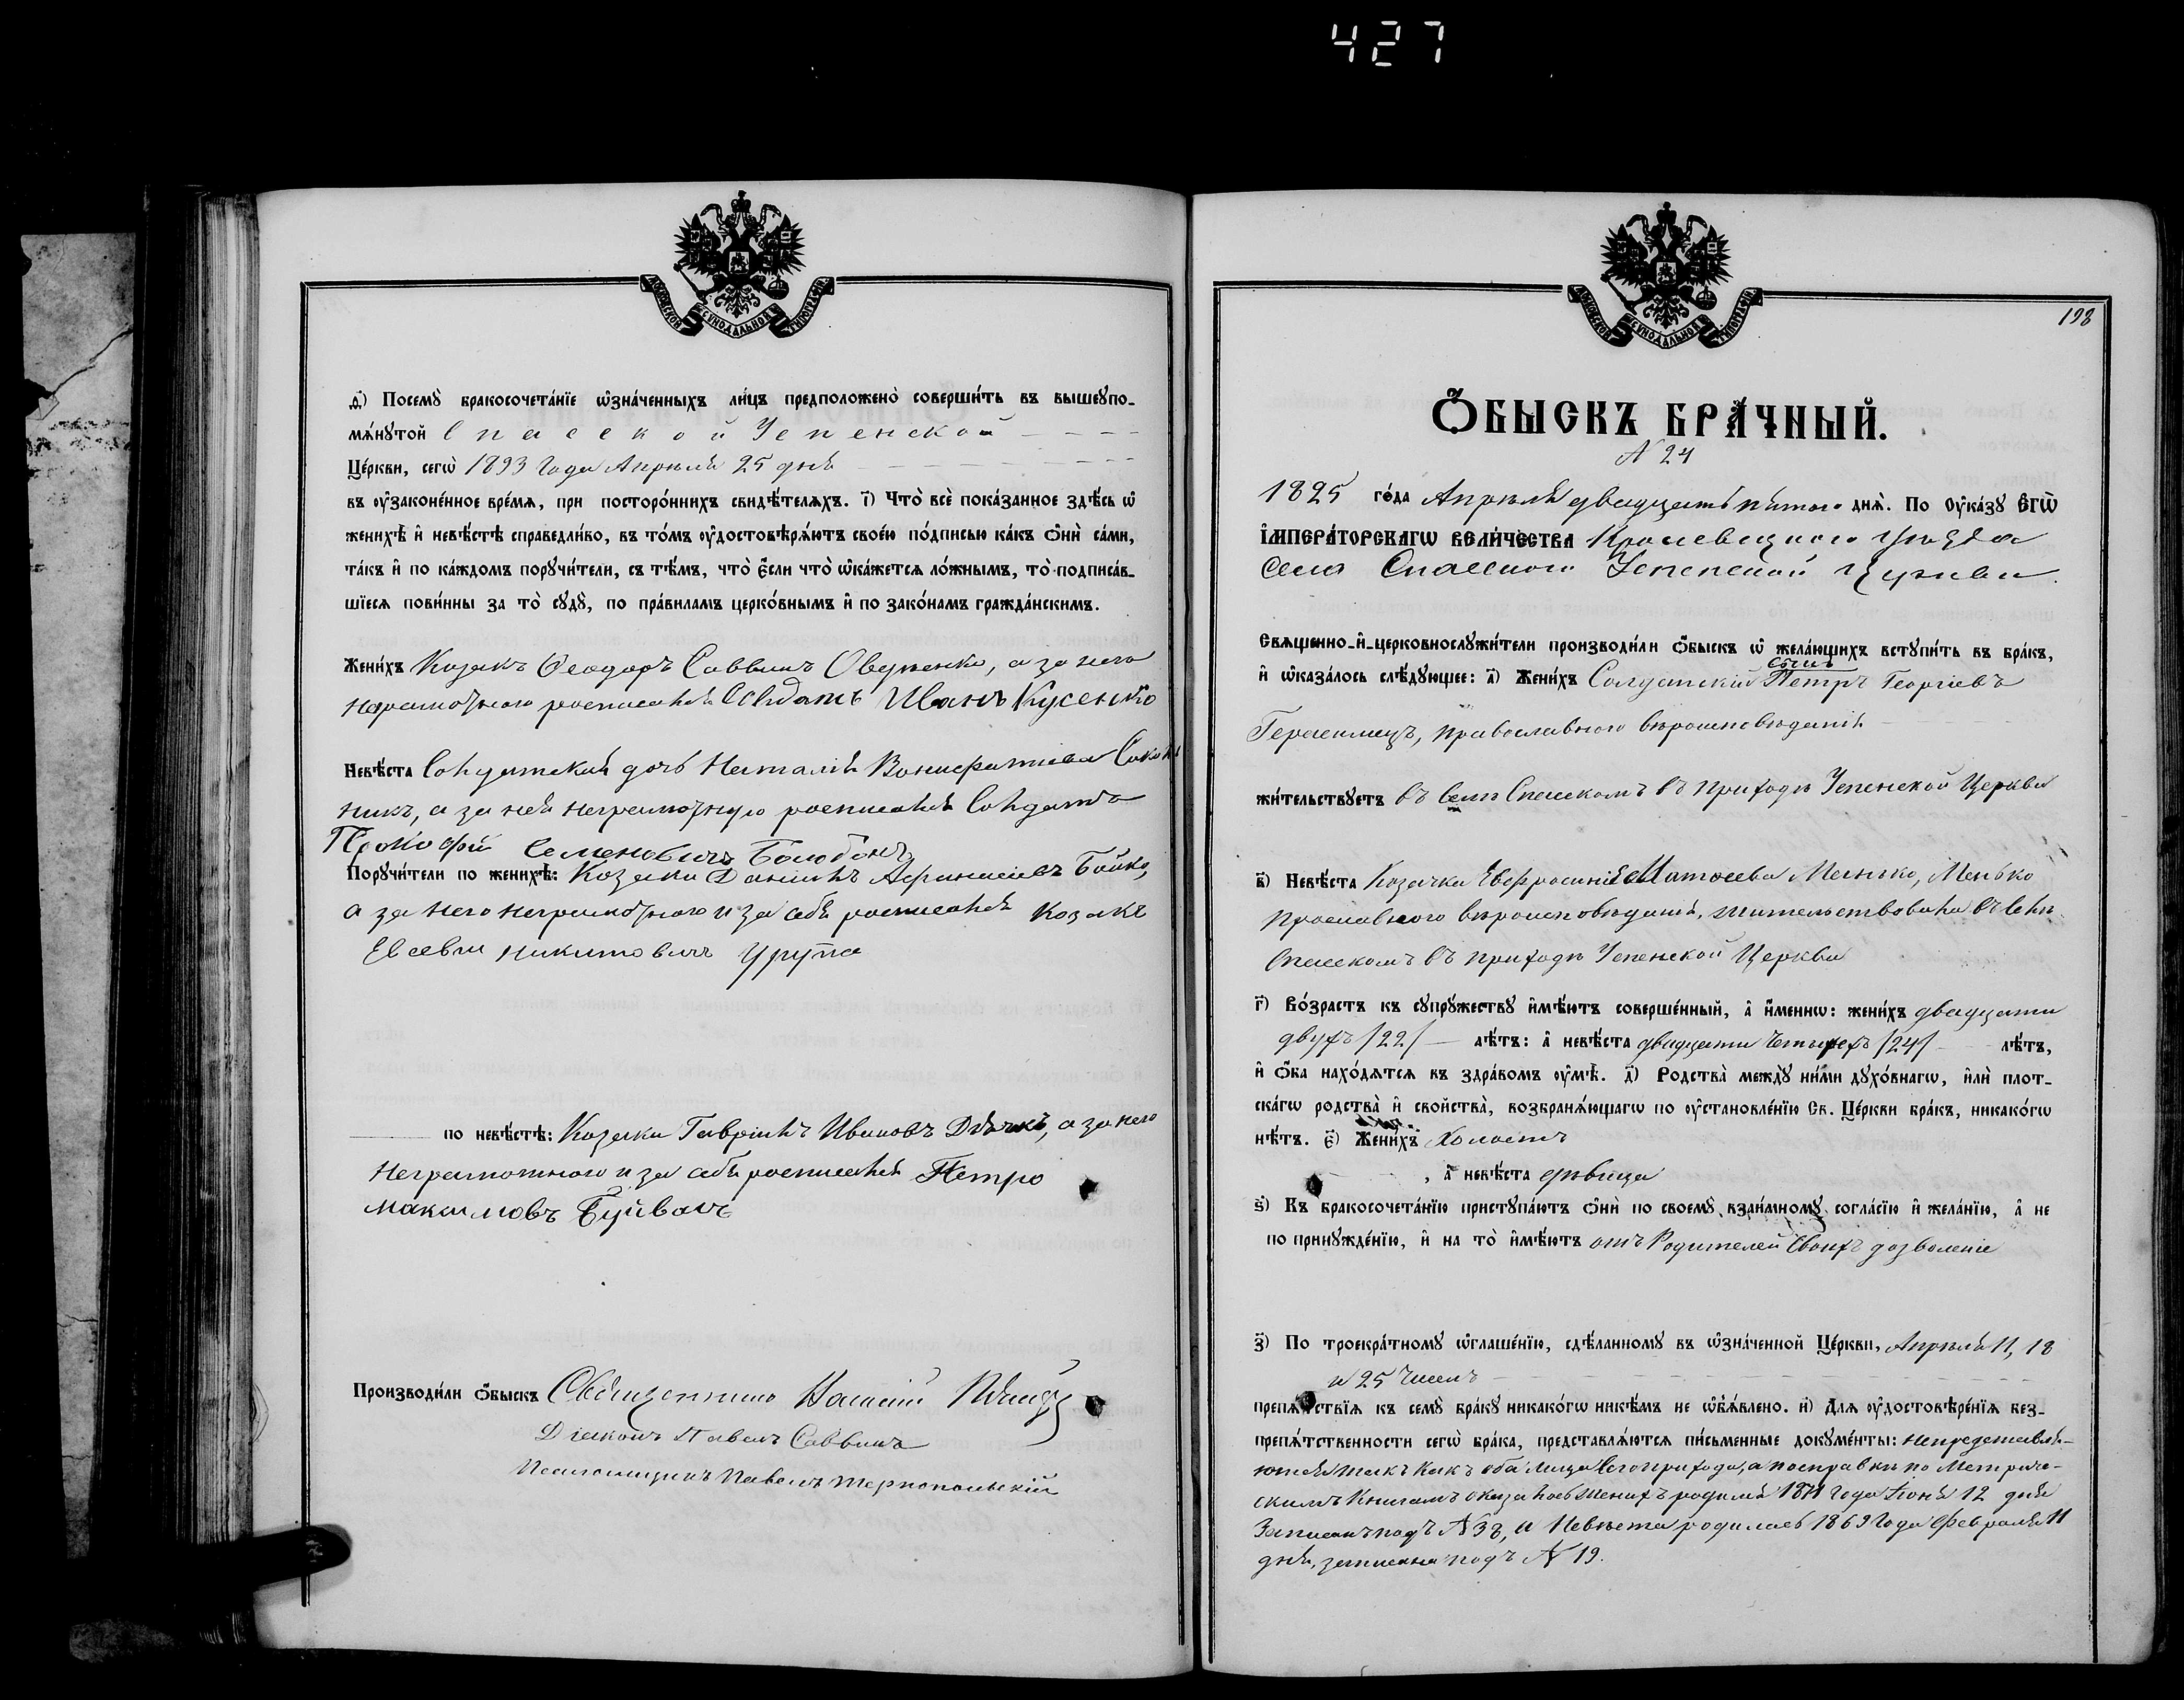 427
МОСКОВСКОЙ СѴНОДАЛЬНОЙ ТИПОГРАФІИ
ѳ҃) Посемꙋ̀ бракосочета́нїе ѡ҆зна́ченныхъ ли́цъ предположено̀ соверши́ть въ вышеꙋпо-
мѧ́нꙋтой Спасской Успенской
Це́ркви, сегѡ̀ 1893 года Апрѣля 25 дня
въ ᲂу҆законе́нное вре́мѧ, при посторо́ннихъ свидѣ́телѧхъ. і҃) Что̀ всѐ пока́занное здѣ́сь ѡ҆
женихѣ̀ и҆ невѣ́стѣ справедли́во, въ то́мъ ᲂу҆достовѣрѧ́ютъ свое́ю по́дписью ка́къ ѻ҆нѝ са́ми,
та́къ и҆ по ка́ждомъ порꙋчи́тели, съ тѣ́мъ, что̀ є҆́сли что̀ ѡ҆ка́жетсѧ ло́жнымъ, то̀ подписа́в-
шїесѧ пови́нны за то̀ сꙋдꙋ̀, по пра́виламъ церко́внымъ и҆ по зако́намъ гражда́нскимъ.
Жени́хъ Козакъ Ѳеодоръ Саввинъ Оверченко, а за него
неграмотного росписался Солдатъ Иванъ Кусенко
Невѣ́ста Солдатская дочь Наталія Вонифатиева
никъ, а за нея неграмотную росписался Солдатъ
Прокофій Семеновичъ
Порꙋчи́тели по женихѣ̀: Козаки Даніилъ Афанасіевъ Бойко,
а за него неграмотного и за себя росписался Козакъ
Евсевій Никитовичъ Урупа
по невѣ́стѣ: Козаки Гавріилъ Ивановъ Дѣячкъ, а за него
неграмотного и за себя росписался Петро
Максимовъ Буйвалъ
Производи́ли ѻ҆́быскъ Священникъ Василій
Діаконъ Павелъ Саввичъ
Псаломщикъ Павелъ Тернопольскій
МОСКОВСКОЙ СѴНОДАЛЬНОЙ ТИПОГРАФІИ
198
Ѻ҆́БЫСКЪ БРА́ЧНЫЙ.
№ 24
1895 го́да Апрѣля двадцать пятого днѧ̀. По Оу҆ка́зꙋ Є҆ГѠ̀
И҆МПЕРА́ТОРСКАГѠ ВЕЛИ́ЧЕСТВА Кролевецкого Уѣзда
Села Спасского Успенской Церкви.
Свѧще́нно-и҆-церковнослꙋжи́тели производи́ли ѻ҆́быскъ ѡ҆ жела́ющихъ встꙋпи́ть въ бра́къ,
и҆ ѡ҆каза́лось слѣ́дꙋющее: а҃) Жени́хъ Солдатскій сынъ Петръ Георгіевъ
Герасимецъ, православного вѣроисповѣданія
жи́тельствꙋетъ въ Селѣ Спасскомъ въ приходѣ Успенской Церкви
в҃) Невѣ́ста Козачка Евфросинія Матвеева Менько, Менько
праславного вѣроисповѣданія, жительствовала въ Селѣ
Спасскомъ въ приходѣ Успенской Церкви
г҃) Во́зрастъ къ сꙋпрꙋ́жествꙋ и҆мѣ́ютъ соверше́нный, а҆ и҆́меннѡ: жени́хъ двадцати
двухъ /22/ лѣ́тъ: а҆ невѣ́ста двадцати четырехъ /24/ лѣ́тъ,
и҆ ѻ҆́ба нахо́дѧтсѧ въ здра́вомъ ᲂу҆мѣ̀. д҃) Родства̀ междꙋ̀ ни́ми дꙋхо́внагѡ, и҆лѝ плот-
ска́гѡ родства̀ и҆ свойства̀, возбранѧ́ющагѡ по ᲂу҆становле́нїю Св. Це́ркви бра́къ, никако́гѡ
нѣ́тъ. є҃) Жени́хъ холостъ
, а҆ невѣ́ста дѣвица
ѕ҃) Къ бракосочета́нїю пристꙋпа́ютъ ѻ҆нѝ по своемꙋ̀ взаи́мномꙋ согла́сїю и҆ жела́нїю, а҆ не
по принꙋжде́нїю, и҆ на то̀ и҆мѣ́ютъ отъ Родителей своихъ дозволеніе
з҃) По троекра́тномꙋ ѡ҆глаше́нїю, сдѣ́ланномꙋ въ ѡ҆зна́ченной Це́ркви, Апрѣля 11, 18
и 25 чиселъ
препѧ́тствїѧ къ семꙋ̀ бра́кꙋ никако́гѡ никѣ́мъ не ѡ҆б̾ѧ́влено. и҃) Длѧ ᲂу҆достовѣре́нїѧ без-
препѧ́тственности сегѡ̀ бра́ка, представлѧ́ютсѧ пи́сьменные докꙋме́нты: непредставля-
ются такъ какъ оба лица сего прихода, а посправкѣ по Метриче-
скимъ Книгамъ оказалось Женихъ родился 1871 года Іюня 12 дня
Записанъ подъ № 38, а Невѣста родилась 1869 года Февраля 11
дня, записана подъ № 19.